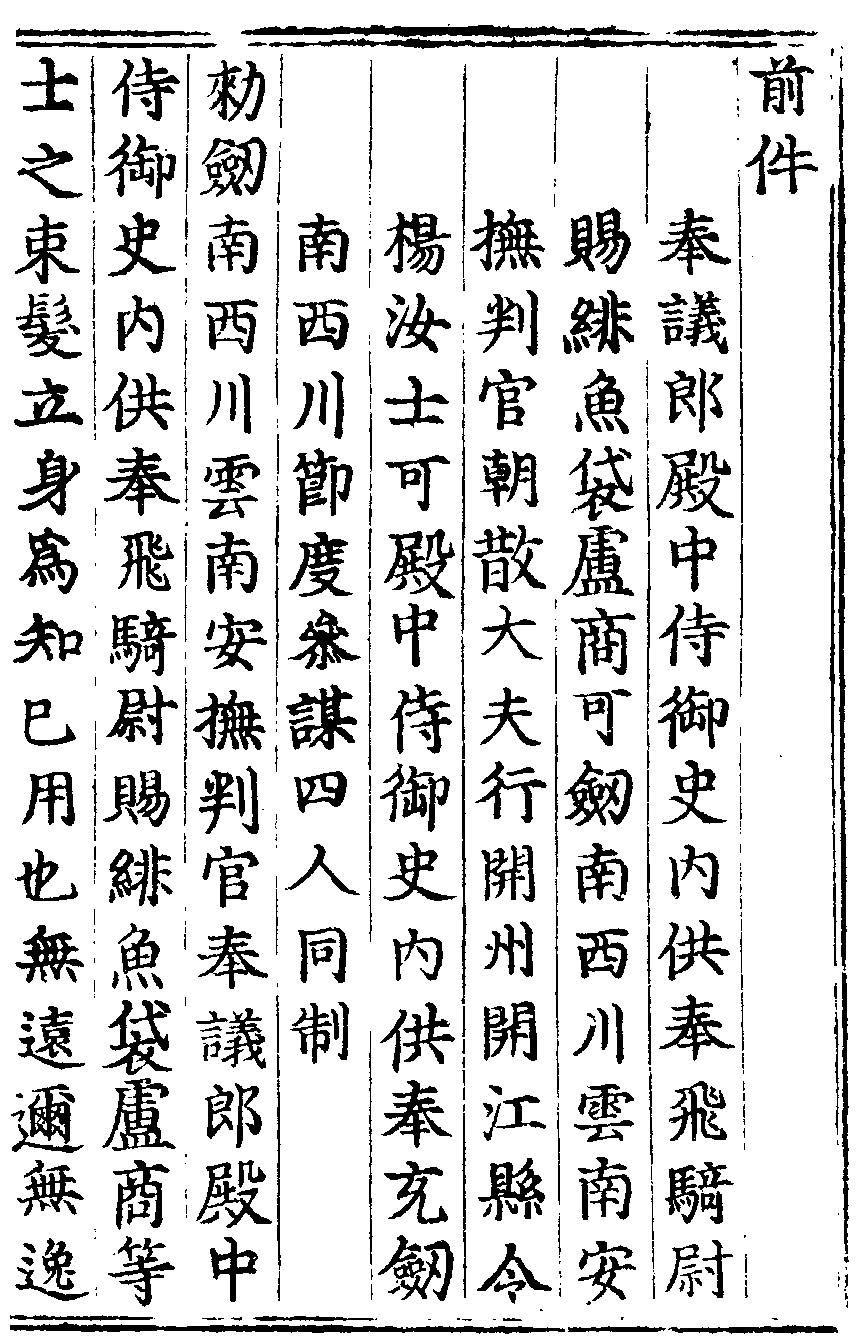 前件
奉議郎殿中侍御史内供奉飛騎尉
賜緋魚袋盧商可劒南西川雲南安
撫判官朝散大夫行開州開江縣令
楊汝士可殿中侍御史内供奉充劒
南西川節度叅謀四人同制
勑劒南西川雲南安撫判官奉議郎殿中
侍御史内供奉飛騎尉賜緋魚袋盧商等
士之束髮立身爲知已用也無遠邇無逸